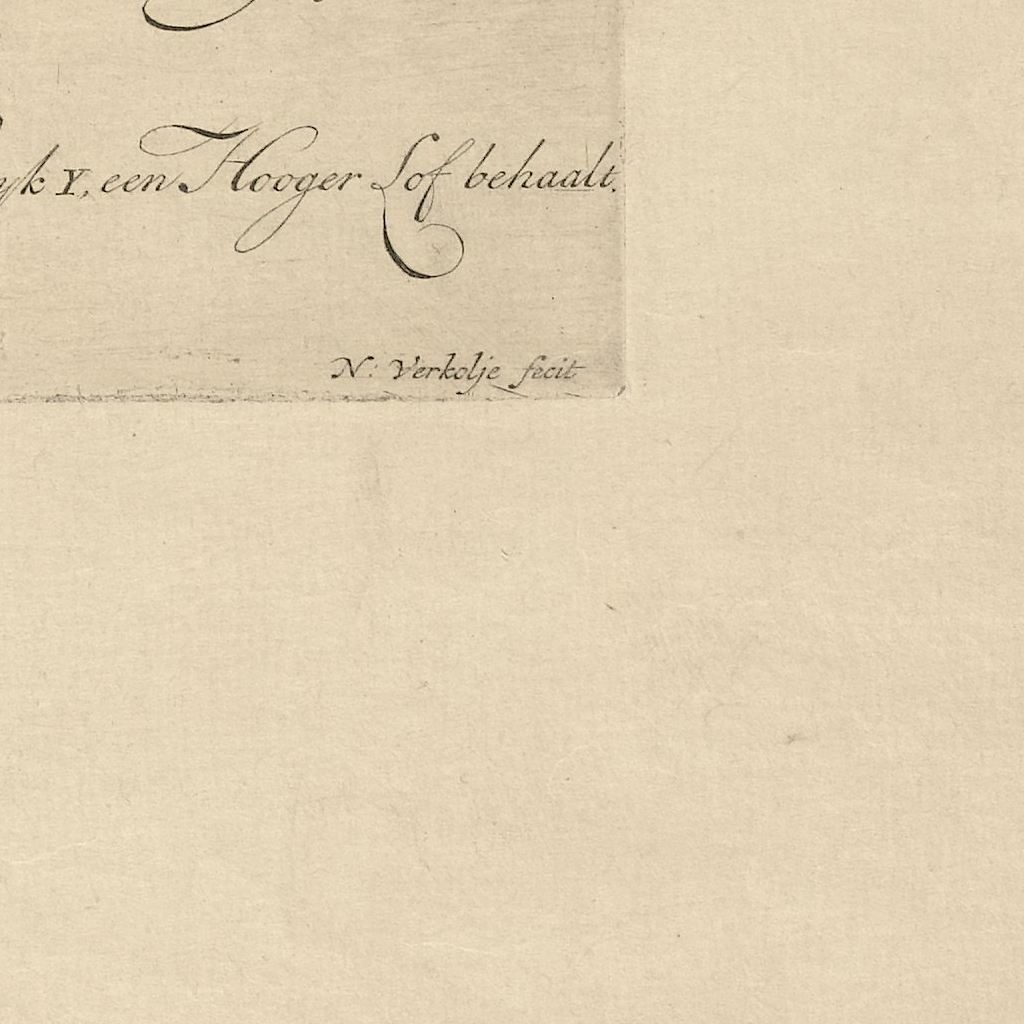 yk Y, een Hooger Lof behaalt.
N: Verkolje fecit